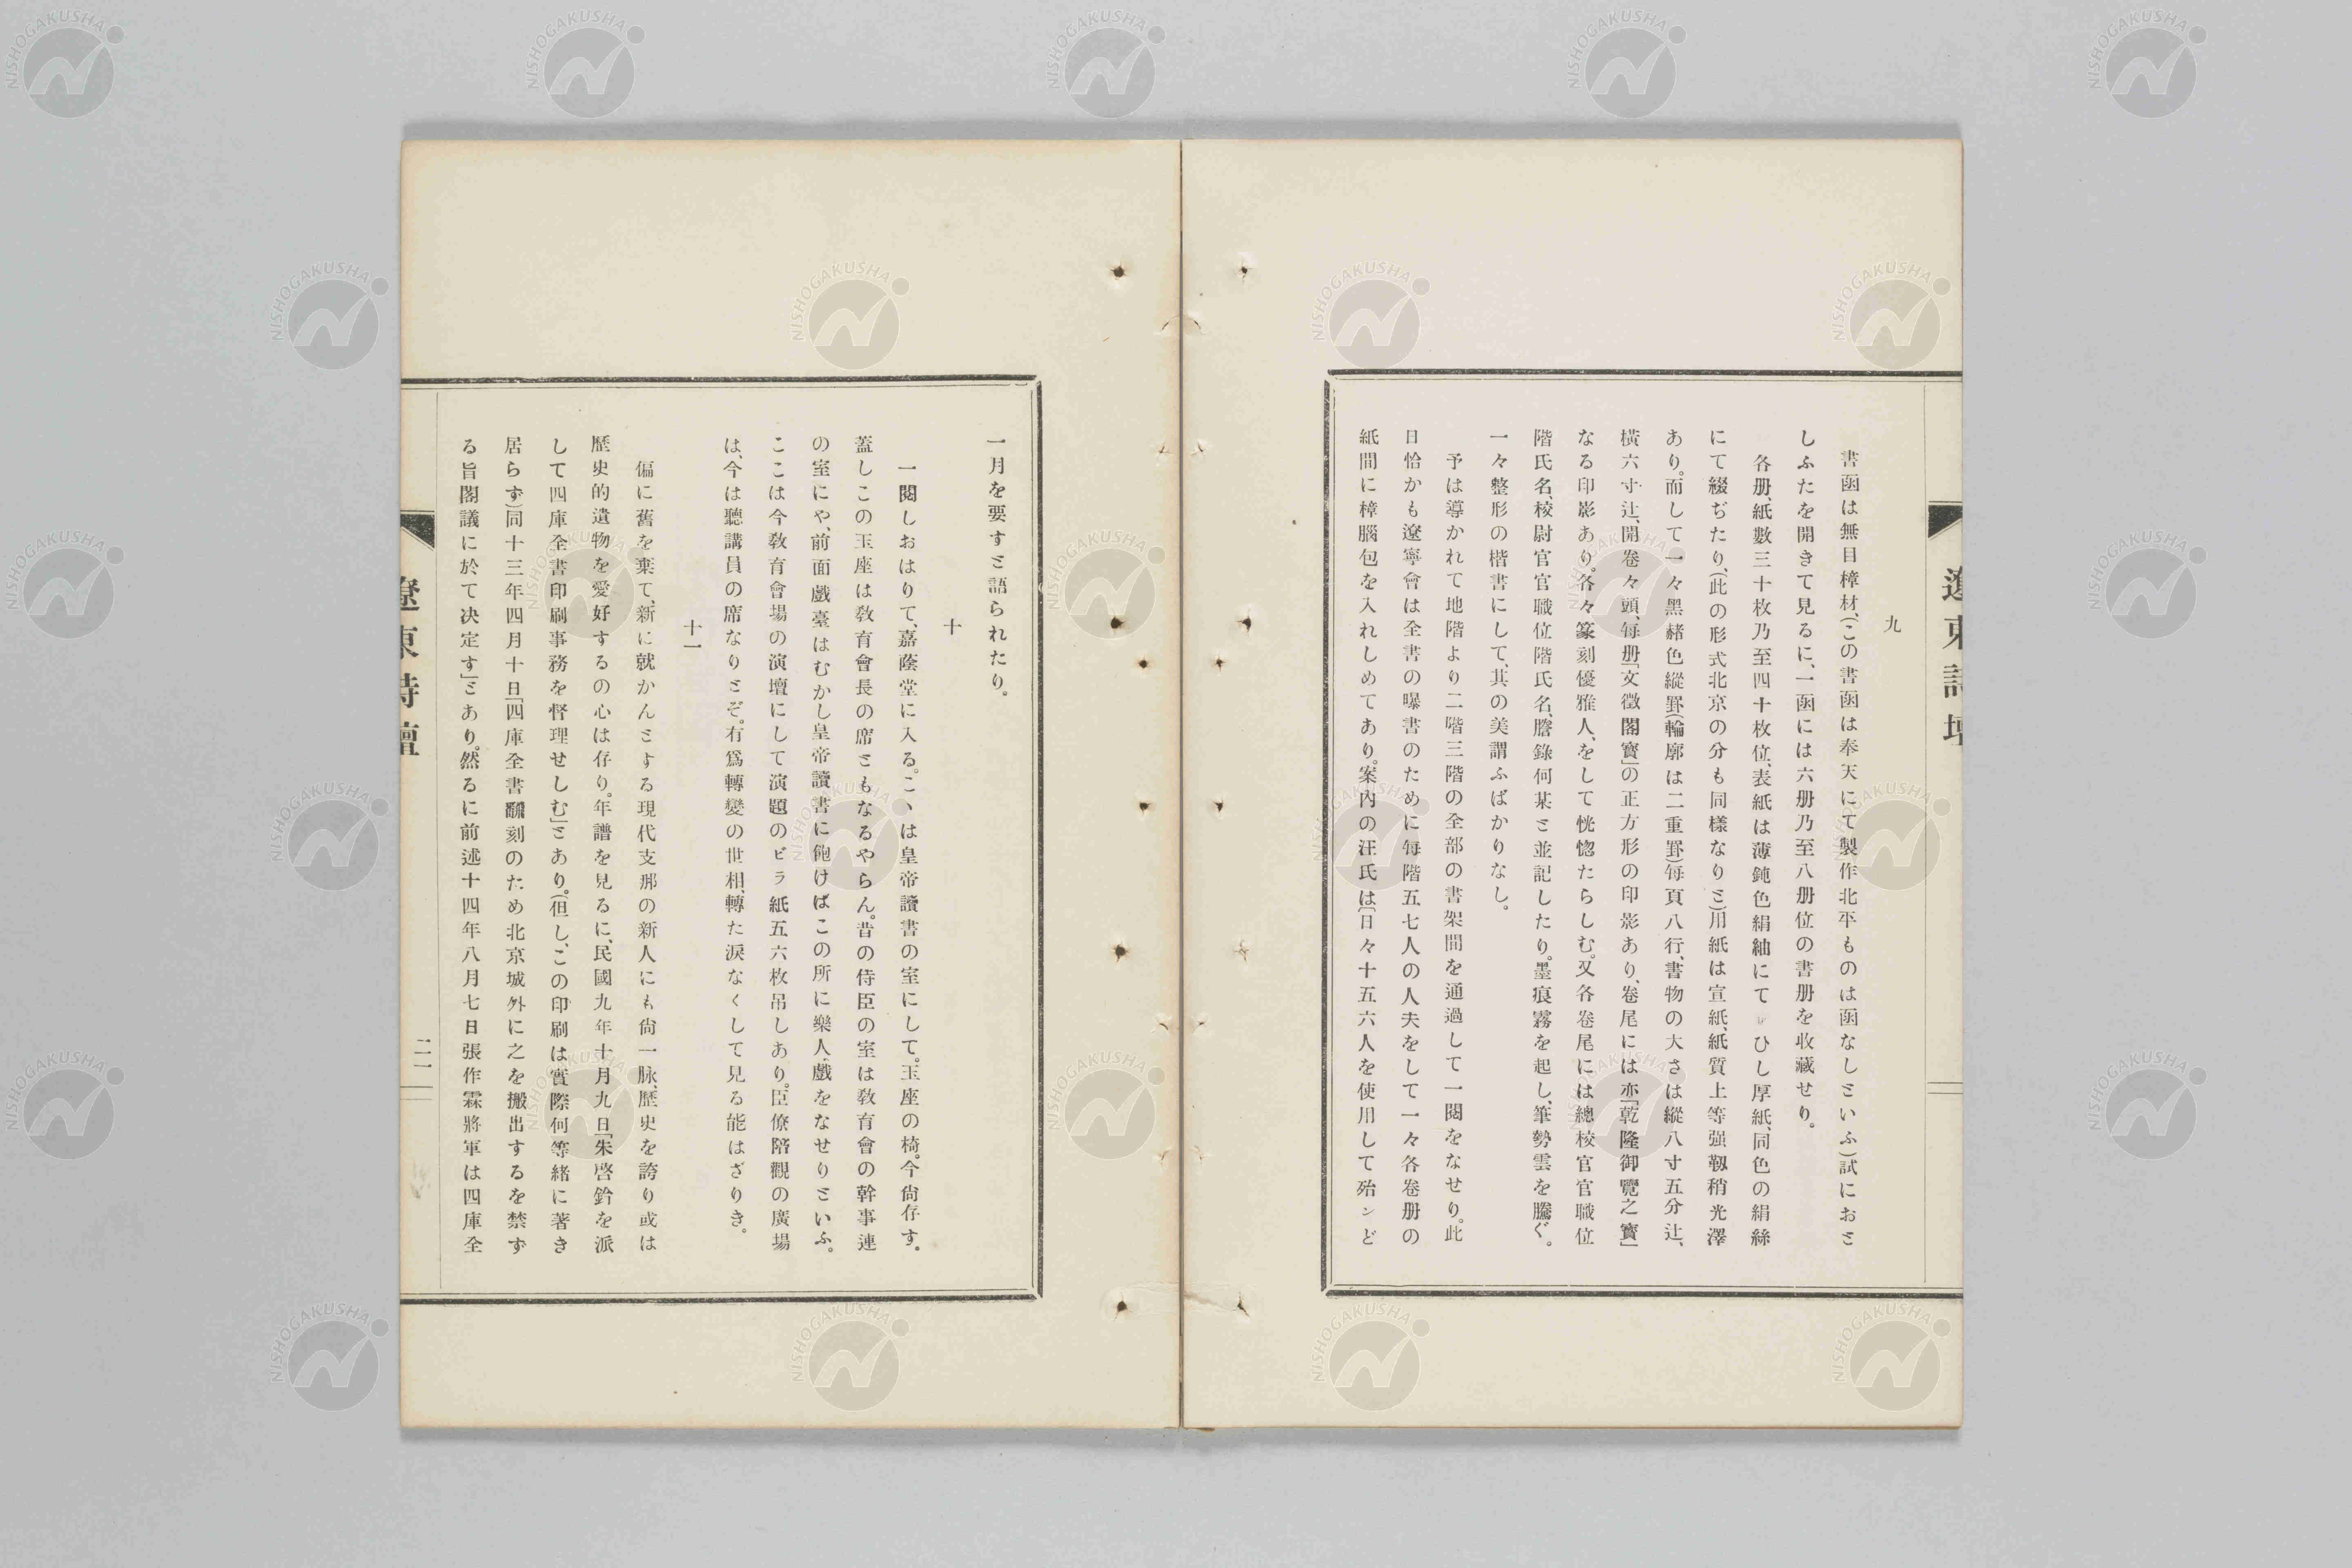 九
書凾は無目樟材、(この書凾は奉天にて製作北平ものは凾なしといふ)試におと
しふたを開きて見るに、一凾には六册乃至八册位の書册を收藏せり。
各册、紙數三十枚乃至四十枚位、表紙は薄鈍色絹紬にて ひし厚紙、同色の絹絲
にて綴ぢたり、(此の形式北京の分も同樣なりと)用紙は宣紙、紙質上等强靱稍光澤
あり。而して一々黑赭色縱罫(輪廓は二重罫)每頁八行、書物の大さは縱八寸五分辻、
橫六寸辻、開卷々頭、每册「文徵閣寳」の正方形の印影あり、卷尾には亦「乾隆御覽之寳」
なる印影あり。各々篆刻優雅人、をして恍惚たらしむ。又各卷尾には總校官官職位
階氏名、校尉官官職位階氏名、謄錄何某と並記したり。墨痕霧を起し、筆勢雲を騰ぐ。
一々整形の楷書にして、其の美謂ふばかりなし。
予は導かれて地階より二階三階の全部の書架間を通過して一閱をなせり。此
日恰かも遼寧會は全書の曝書のために每階五、七人の人夫をして一々各卷册の
紙間に樟腦包を入れしめてあり。案內の汪氏は「日々十五六人を使用して殆ンど
一月を要すと語られたり。
十
一閱しおはりて、嘉蔭堂に入る。こゝは皇帝讀書の室にして。玉座の椅。今尙存す。
蓋しこの玉座は敎育會長の席ともなるやらん。昔の侍臣の室は敎育會の幹事連
の室にや、前面戲臺はむかし皇帝讀書に飽けばこの所に樂人、戲をなせりといふ。
ここは今敎育會場の演壇にして演題のビラ紙五、六枚吊しあり。臣僚陪觀の廣場
は、今は聽講員の席なりとぞ。有爲轉變の世相、轉た淚なくして見る能はざりき。
十一
偏に舊を棄て、新に就かんとする現代支那の新人にも尙一脉、歷史を誇り或は
歷史的遺物を愛好するの心は存り。年譜を見るに、民國九年十月九日「朱啓鈐を派
して四庫全書印刷事務を督理せしむ」とあり。(但し、この印刷は實際何等緖に著き
居らず)同十三年四月十日「四庫全書飜刻のため北京城外に之を搬出するを禁ず
る旨閣議に於て决定す」とあり。然るに前述十四年八月七日張作霖將軍は四庫全
遼東詩壇
二一